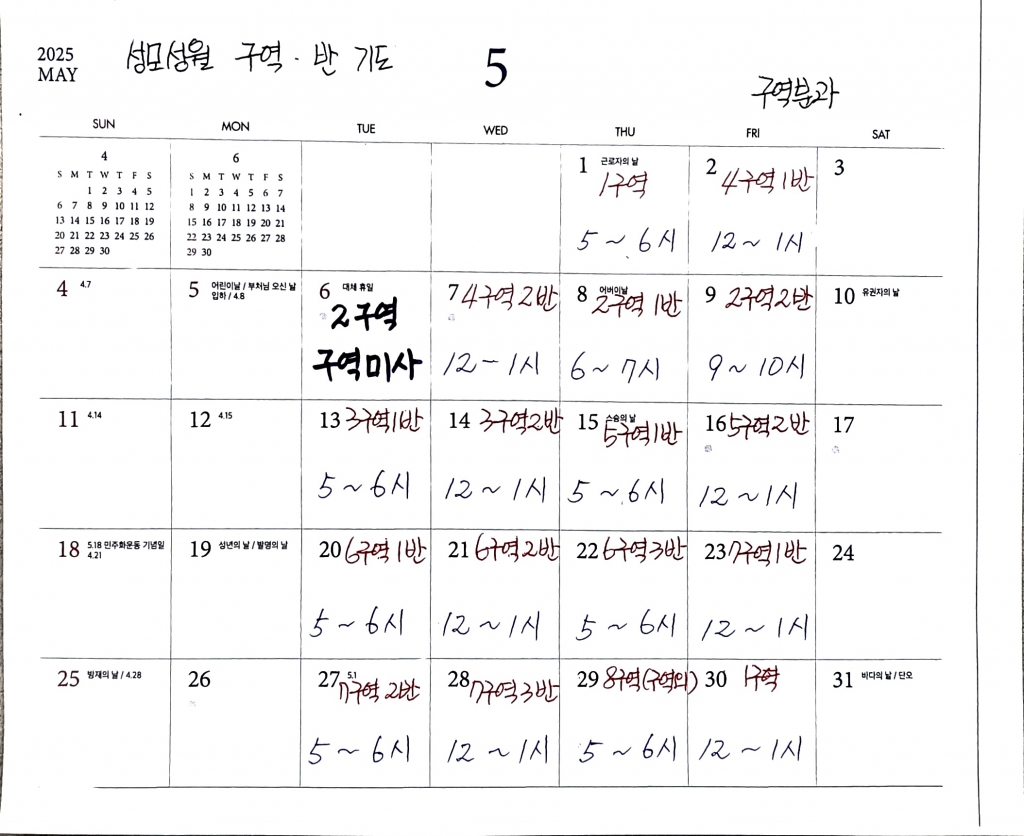 2025
MAY
성모성월 구역·반 기도
5
구역분과
SUN MON TUE WED THU FRI SAT
4
S M T W T F S
1 2 3 4 5
6 7 8 9 10 11 12
13 14 15 16 17 18 19
20 21 22 23 24 25 26
27 28 29 30
6
S M T W T F S
1 2 3 4 5 6 7
8 9 10 11 12 13 14
15 16 17 18 19 20 21
22 23 24 25 26 27 28
29 30
1 근로자의 날
1구역
5 ~ 6시
2 4구역 1반
12 ~ 1시
3
4 4.7
5 어린이날 / 부처님 오신 날
입하 / 4.8
6 대체 휴일
2구역
구역미사
7 4구역 2반
12 - 1시
8 어버이날
2구역 1반
6 ~ 7시
9 2구역 2반
9 ~ 10시
10 유권자의 날
11 4.14
12 4.15
13 3구역 1반
5 ~ 6시
14 3구역 2반
12 ~ 1시
15 스승의 날
5구역 1반
5 ~ 6시
16 5구역 2반
12 ~ 1시
17
18 5.18 민주화운동 기념일
4.21
19 성년의 날 / 발명의 날
20 6구역 1반
5 ~ 6시
21 6구역 2반
12 ~ 1시
22 6구역 3반
5 ~ 6시
23 7구역 1반
12 ~ 1시
24
25 방재의 날 / 4.28
26
27 5.1
7구역 2반
5 ~ 6시
28 7구역 3반
12 ~ 1시
29 8구역(구역외)
5 ~ 6시
30 1구역
12 ~ 1시
31 바다의 날 / 단오